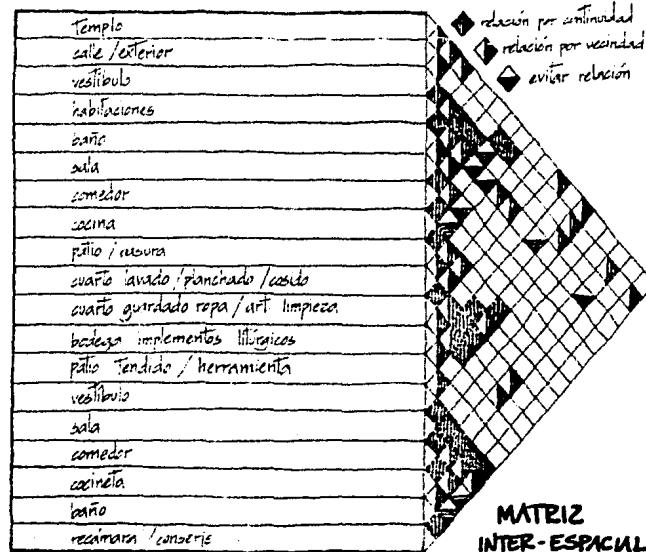 templo
calle / exterior
vestíbulo
habitaciones
baño
sala
comedor
cocina
patio / basura
cuarto lavado / planchado / cosido
cuarto guardado ropa / art. limpieza
bodega implementos litúrgicos
patio tendido / herramienta
vestíbulo
sala
comedor
cocineta
baño
recámara / conserje
relación por continuidad
relación por vecindad
evitar relación
MATRIZ
INTER-ESPACIAL